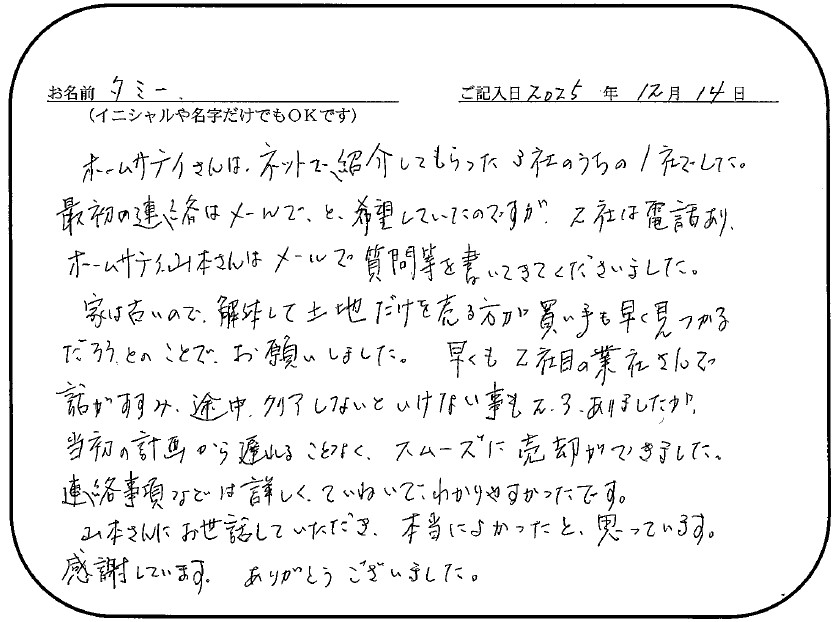 お名前 タミー. ご記入日 2025 年 12月 14日
(イニシャルや名字だけでもOKです)
ホームサテイさんは、ネットで、紹介してもらった 3社のうちの1社でした。
最初の連絡はメールで、と、希望していたのですが、2社は電話あり、
ホームサテイ、山本さんはメールで質問等を書いてきてくださいました。
家は古いので、解体して土地だけを売る方が買い手も早く見つかる
だろう、とのことで、お願いしました。 早くも2社目の業社さんで
話がすすみ、途中、クリアしないといけない事も 2、3、ありましたが、
当初の計画から遅れることなく、スムーズに売却ができました。
連絡事項などは詳しく、ていねいで、わかりやすかったです。
山本さんにお世話していただき、本当によかったと、思っています。
感謝しています。 ありがとうございました。